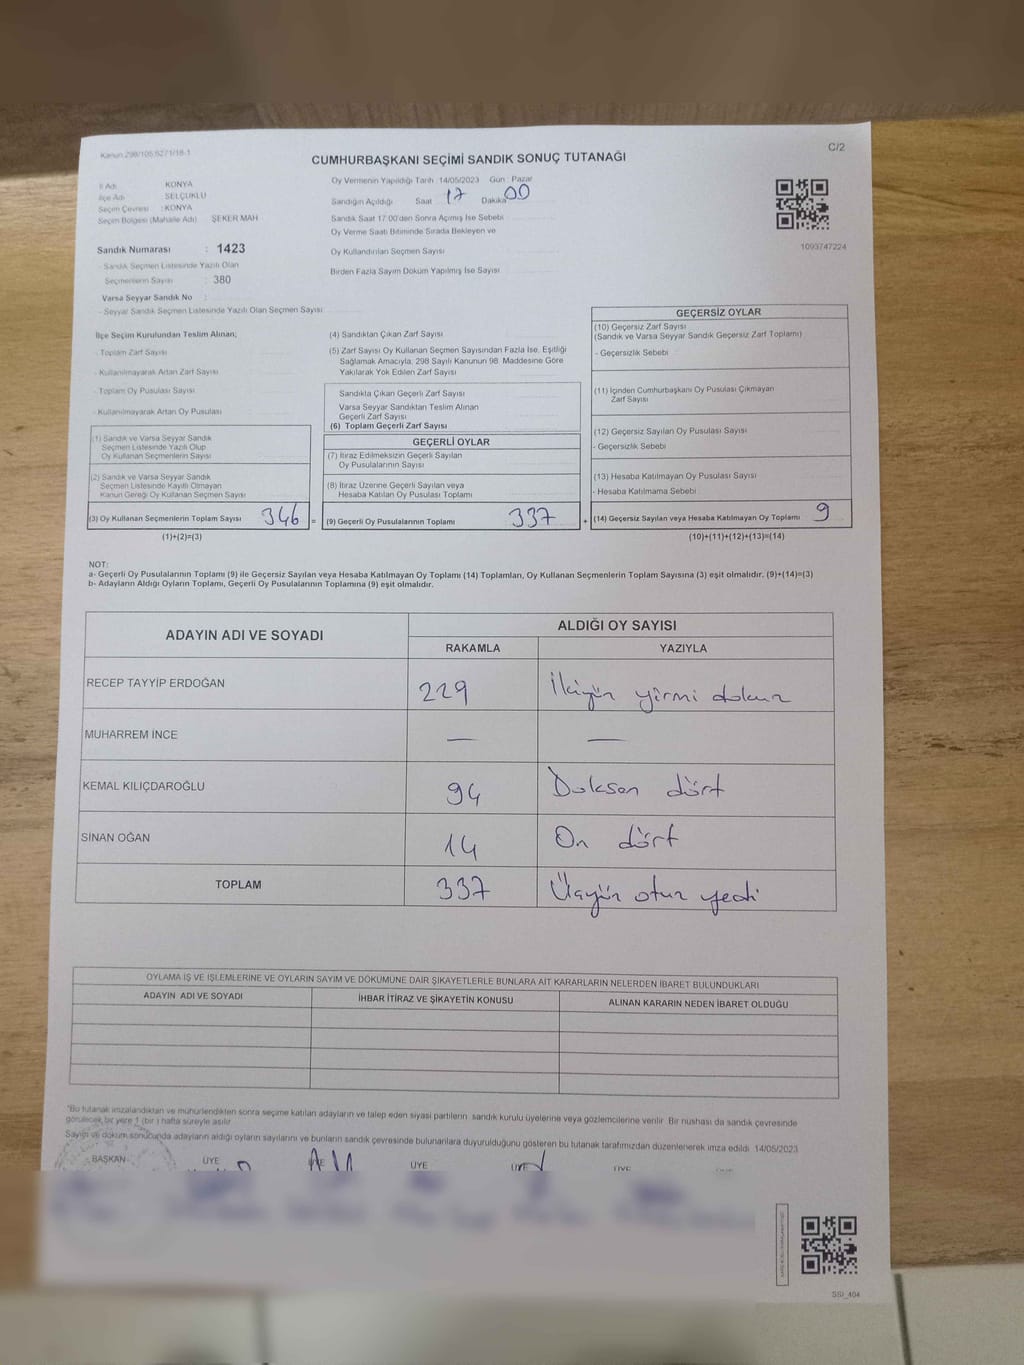 Kanun 298/105,6271/18-1
C/2
CUMHURBAŞKANI SEÇİMİ SANDIK SONUÇ TUTANAĞI
İl Adı KONYA
İlçe Adı SELÇUKLU
Seçim Çevresi : KONYA
Seçim Bölgesi (Mahalle Adı) ŞEKER MAH
Sandık Numarası : 1423
- Sandık Seçmen Listesinde Yazılı Olan
Seçmenlerin Sayısı : 380
Varsa Seyyar Sandık No :
- Seyyar Sandık Seçmen Listesinde Yazılı Olan Seçmen Sayısı
Oy Vermenin Yapıldığı Tarih 14/05/2023 Gün : Pazar
Sandığın Açıldığı Saat 17 Dakika 00
Sandık Saat 17:00'den Sonra Açımış İse Sebebi
Oy Verme Saati Bitiminde Sırada Bekleyen ve
Oy Kullandırılan Seçmen Sayısı
Birden Fazla Sayım Döküm Yapılmış İse Sayısı
1093747224
İlçe Seçim Kurulundan Teslim Alınan;
- Toplam Zarf Sayısı
- Kullanılmayarak Artan Zarf Sayısı
- Toplam Oy Pusulası Sayısı
- Kullanılmayarak Artan Oy Pusulası
(1) Sandık ve Varsa Seyyar Sandık
Seçmen Listesinde Yazılı Olup
Oy Kullanan Seçmenlerin Sayısı
(2) Sandık ve Varsa Seyyar Sandık
Seçmen Listesinde Kayıtlı Olmayan
Kanun Gereği Oy Kullanan Seçmen Sayısı
(3) Oy Kullanan Seçmenlerin Toplam Sayısı 346 =
(1)+(2)=(3)
(4) Sandıktan Çıkan Zarf Sayısı
(5) Zarf Sayısı Oy Kullanan Seçmen Sayısından Fazla İse, Eşitliği
Sağlamak Amacıyla, 298 Sayılı Kanunun 98. Maddesine Göre
Yakılarak Yok Edilen Zarf Sayısı
Sandıkta Çıkan Geçerli Zarf Sayısı
Varsa Seyyar Sandıktan Teslim Alınan
Geçerli Zarf Sayısı
(6) Toplam Geçerli Zarf Sayısı
GEÇERLİ OYLAR
(7) İtiraz Edilmeksizin Geçerli Sayılan
Oy Pusulalarının Sayısı
(8) İtiraz Üzerine Geçerli Sayılan veya
Hesaba Katılan Oy Pusulası Toplamı
(9) Geçerli Oy Pusulalarının Toplamı 337 +
GEÇERSİZ OYLAR
(10) Geçersiz Zarf Sayısı
(Sandık ve Varsa Seyyar Sandık Geçersiz Zarf Toplamı)
- Geçersizlik Sebebi
(11) İçinden Cumhurbaşkanı Oy Pusulası Çıkmayan
Zarf Sayısı
(12) Geçersiz Sayılan Oy Pusulası Sayısı
- Geçersizlik Sebebi
(13) Hesaba Katılmayan Oy Pusulası Sayısı
- Hesaba Katılmama Sebebi
(14) Geçersiz Sayılan veya Hesaba Katılmayan Oy Toplamı 9
(10)+(11)+(12)+(13)=(14)
NOT:
a- Geçerli Oy Pusulalarının Toplamı (9) ile Geçersiz Sayılan veya Hesaba Katılmayan Oy Toplamı (14) Toplamları, Oy Kullanan Seçmenlerin Toplam Sayısına (3) eşit olmalıdır. (9)+(14)=(3)
b- Adayların Aldığı Oyların Toplamı, Geçerli Oy Pusulalarının Toplamına (9) eşit olmalıdır.
ADAYIN ADI VE SOYADI
ALDIĞI OY SAYISI
RAKAMLA YAZIYLA
RECEP TAYYİP ERDOĞAN 229 İkiyüz yirmi dokuz
MUHARREM İNCE — —
KEMAL KILIÇDAROĞLU 94 Doksan dört
SİNAN OĞAN 14 On dört
TOPLAM 337 Üçyüz otuz yedi
OYLAMA İŞ VE İŞLEMLERİNE VE OYLARIN SAYIM VE DÖKÜMÜNE DAİR ŞİKAYETLERLE BUNLARA AİT KARARLARIN NELERDEN İBARET BULUNDUKLARI
ADAYIN ADI VE SOYADI İHBAR İTİRAZ VE ŞİKAYETİN KONUSU ALINAN KARARIN NEDEN İBARET OLDUĞU
*Bu tutanak imzalandıktan ve mühürlendikten sonra seçime katılan adayların ve talep eden siyasi partilerin sandık kurulu üyelerine veya gözlemcilerine verilir. Bir nüshası da sandık çevresinde
görülecek bir yere 1 (bir) hafta süreyle asılır
Sayım ve döküm sonucunda adayların aldığı oyların sayılarını ve bunların sandık çevresinde bulunanlara duyurulduğunu gösteren bu tutanak tarafımızdan düzenlenerek imza edildi 14/05/2023
BAŞKAN ÜYE ÜYE ÜYE ÜYE ÜYE
SSI_404